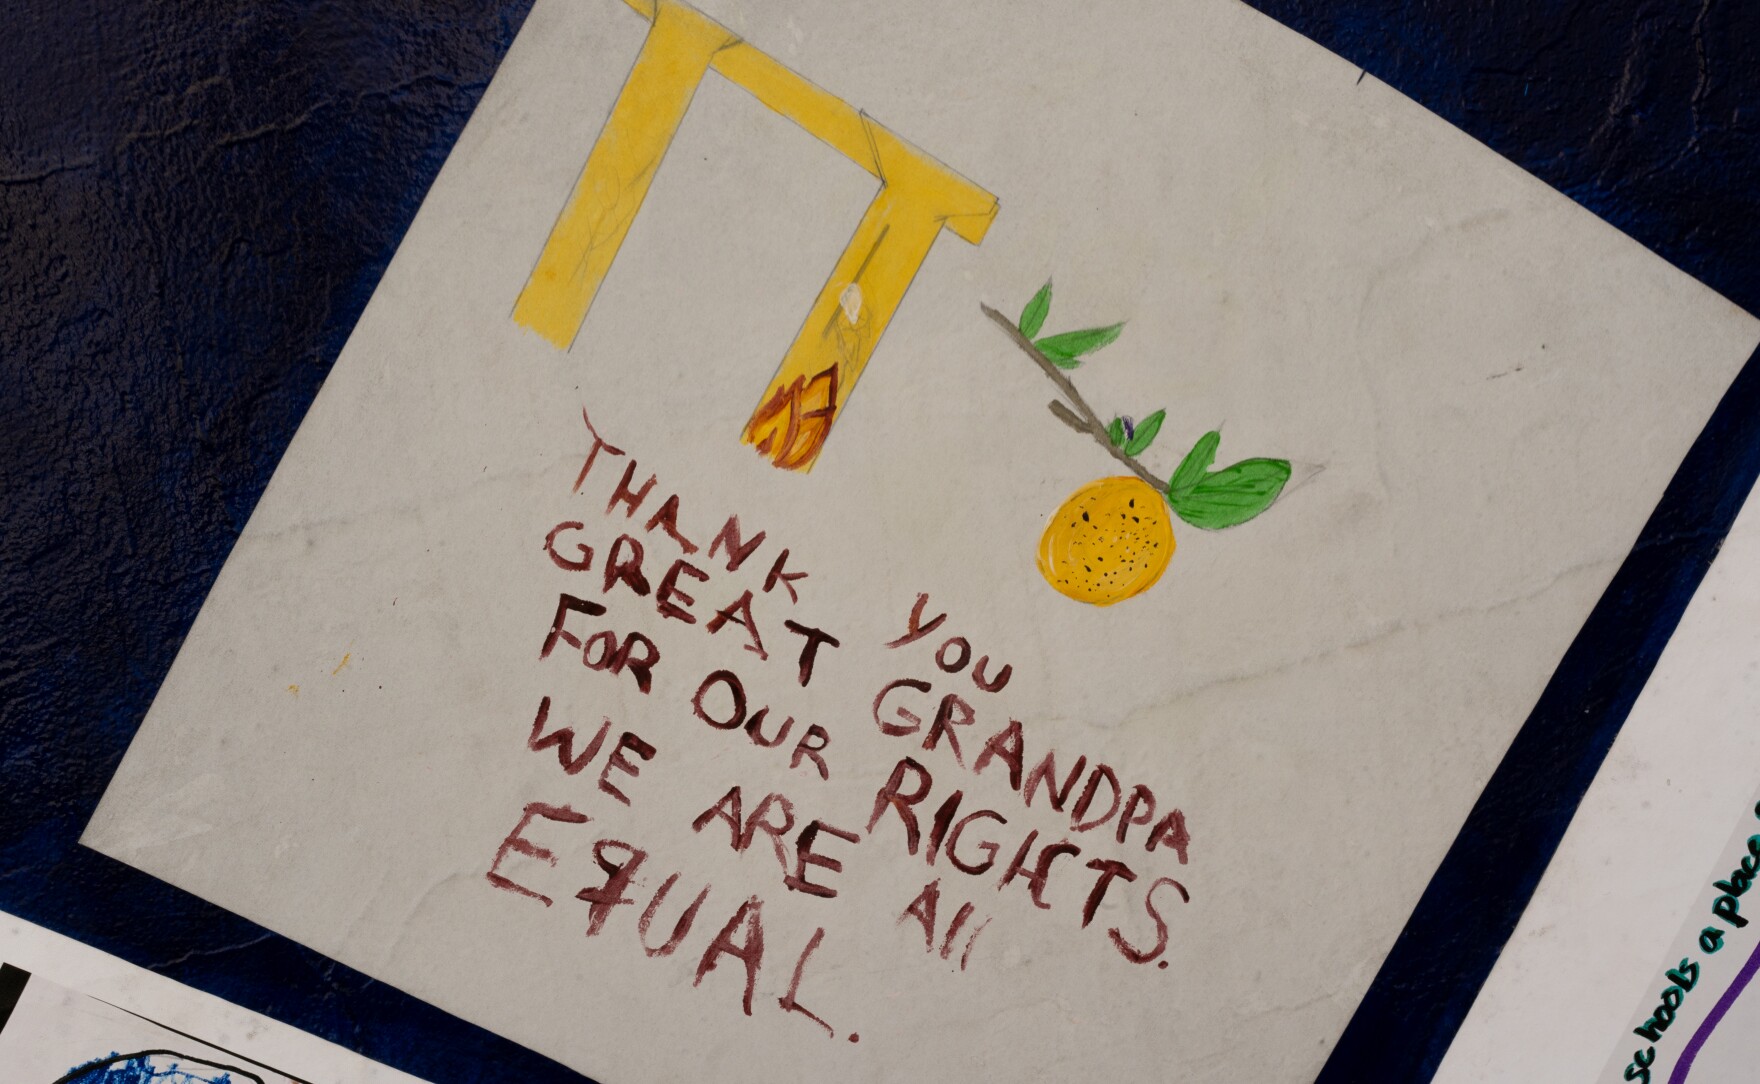 THANK YOU
GREAT GRANDPA
FOR OUR RIGHTS.
WE ARE All
EqUAL.
schools a place